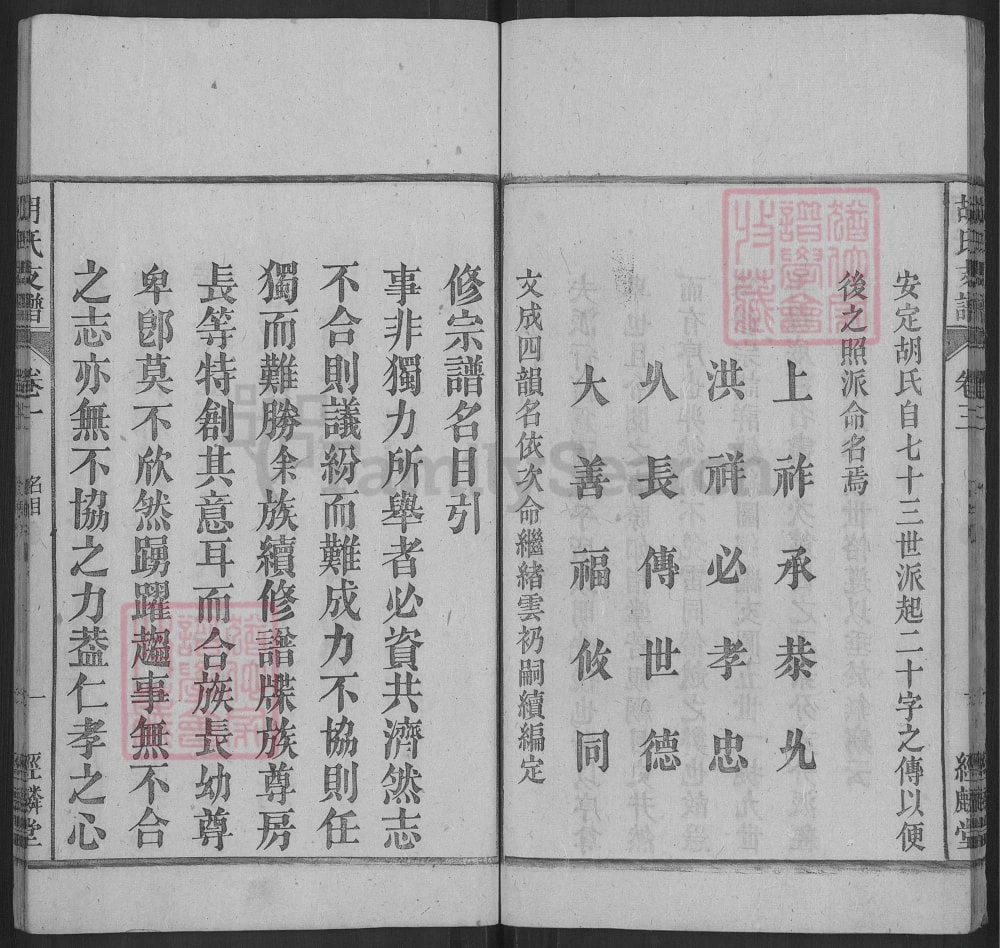 安定胡氏自七十三世派起二十字之傳以便
後之照派命名焉
上祚承恭允
洪祥必孝忠
從長傳世德
大善福攸同
文成四韻名依次命繼緒雲礽嗣續編定
修宗譜名目引
事非獨力所舉者必資共濟然志
不合則議紛而難成力不協則任
獨而難勝余族續修譜牒族尊房
長等特創其意耳而合族長幼尊
卑卽莫不欣然踴躍趨事無不合
之志亦無不協之力葢仁孝之心
胡氏支譜
卷一
名目
一
經麟堂
FamilySearch